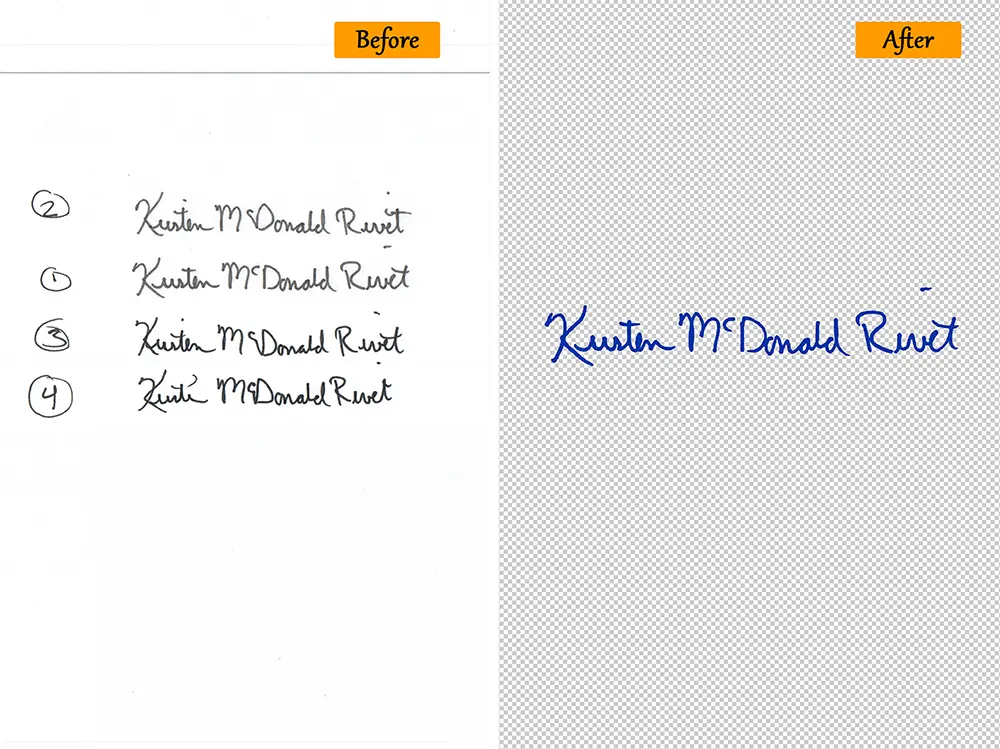 Before
② Kristen McDonald Rivet
① Kristen McDonald Rivet
③ Kristen McDonald Rivet
④ Kristen McDonald Rivet
After
Kristen McDonald Rivet